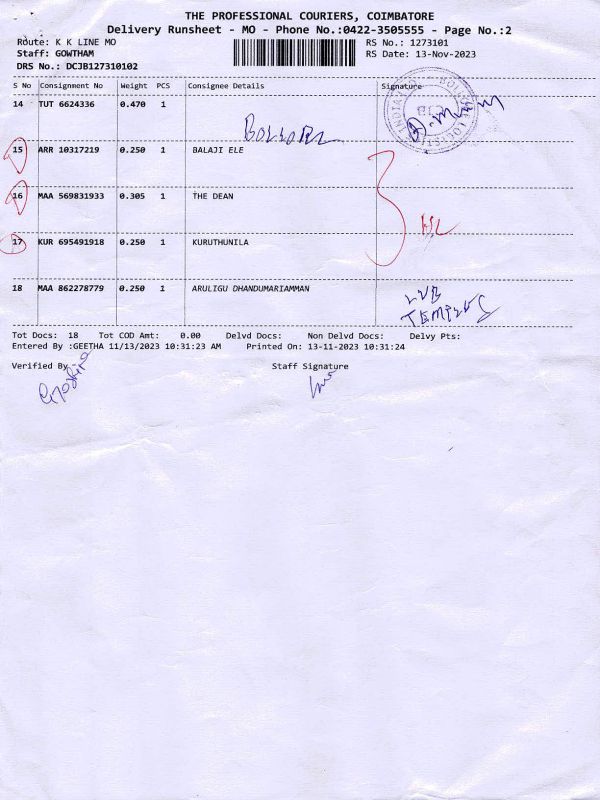 THE PROFESSIONAL COURIERS, COIMBATORE
Delivery Runsheet - MO - Phone No.:0422-3505555 - Page No.:2
Route: K K LINE MO RS No.: 1273101
Staff: GOWTHAM RS Date: 13-Nov-2023
DRS No.: DCJB127310102
S No Consignment No Weight PCS Consignee Details Signature
14 TUT 6624336 0.470 1
15 ARR 10317219 0.250 1 BALAJI ELE
16 MAA 569831933 0.305 1 THE DEAN
17 KUR 695491918 0.250 1 KURUTHUNILA
18 MAA 862278779 0.250 1 ARULIGU DHANDUMARIAMMAN
TEMPLES
Tot Docs: 18 Tot COD Amt: 0.00 Delvd Docs: Non Delvd Docs: Delvy Pts:
Entered By :GEETHA 11/13/2023 10:31:23 AM Printed On: 13-11-2023 10:31:24
Verified By Staff Signature